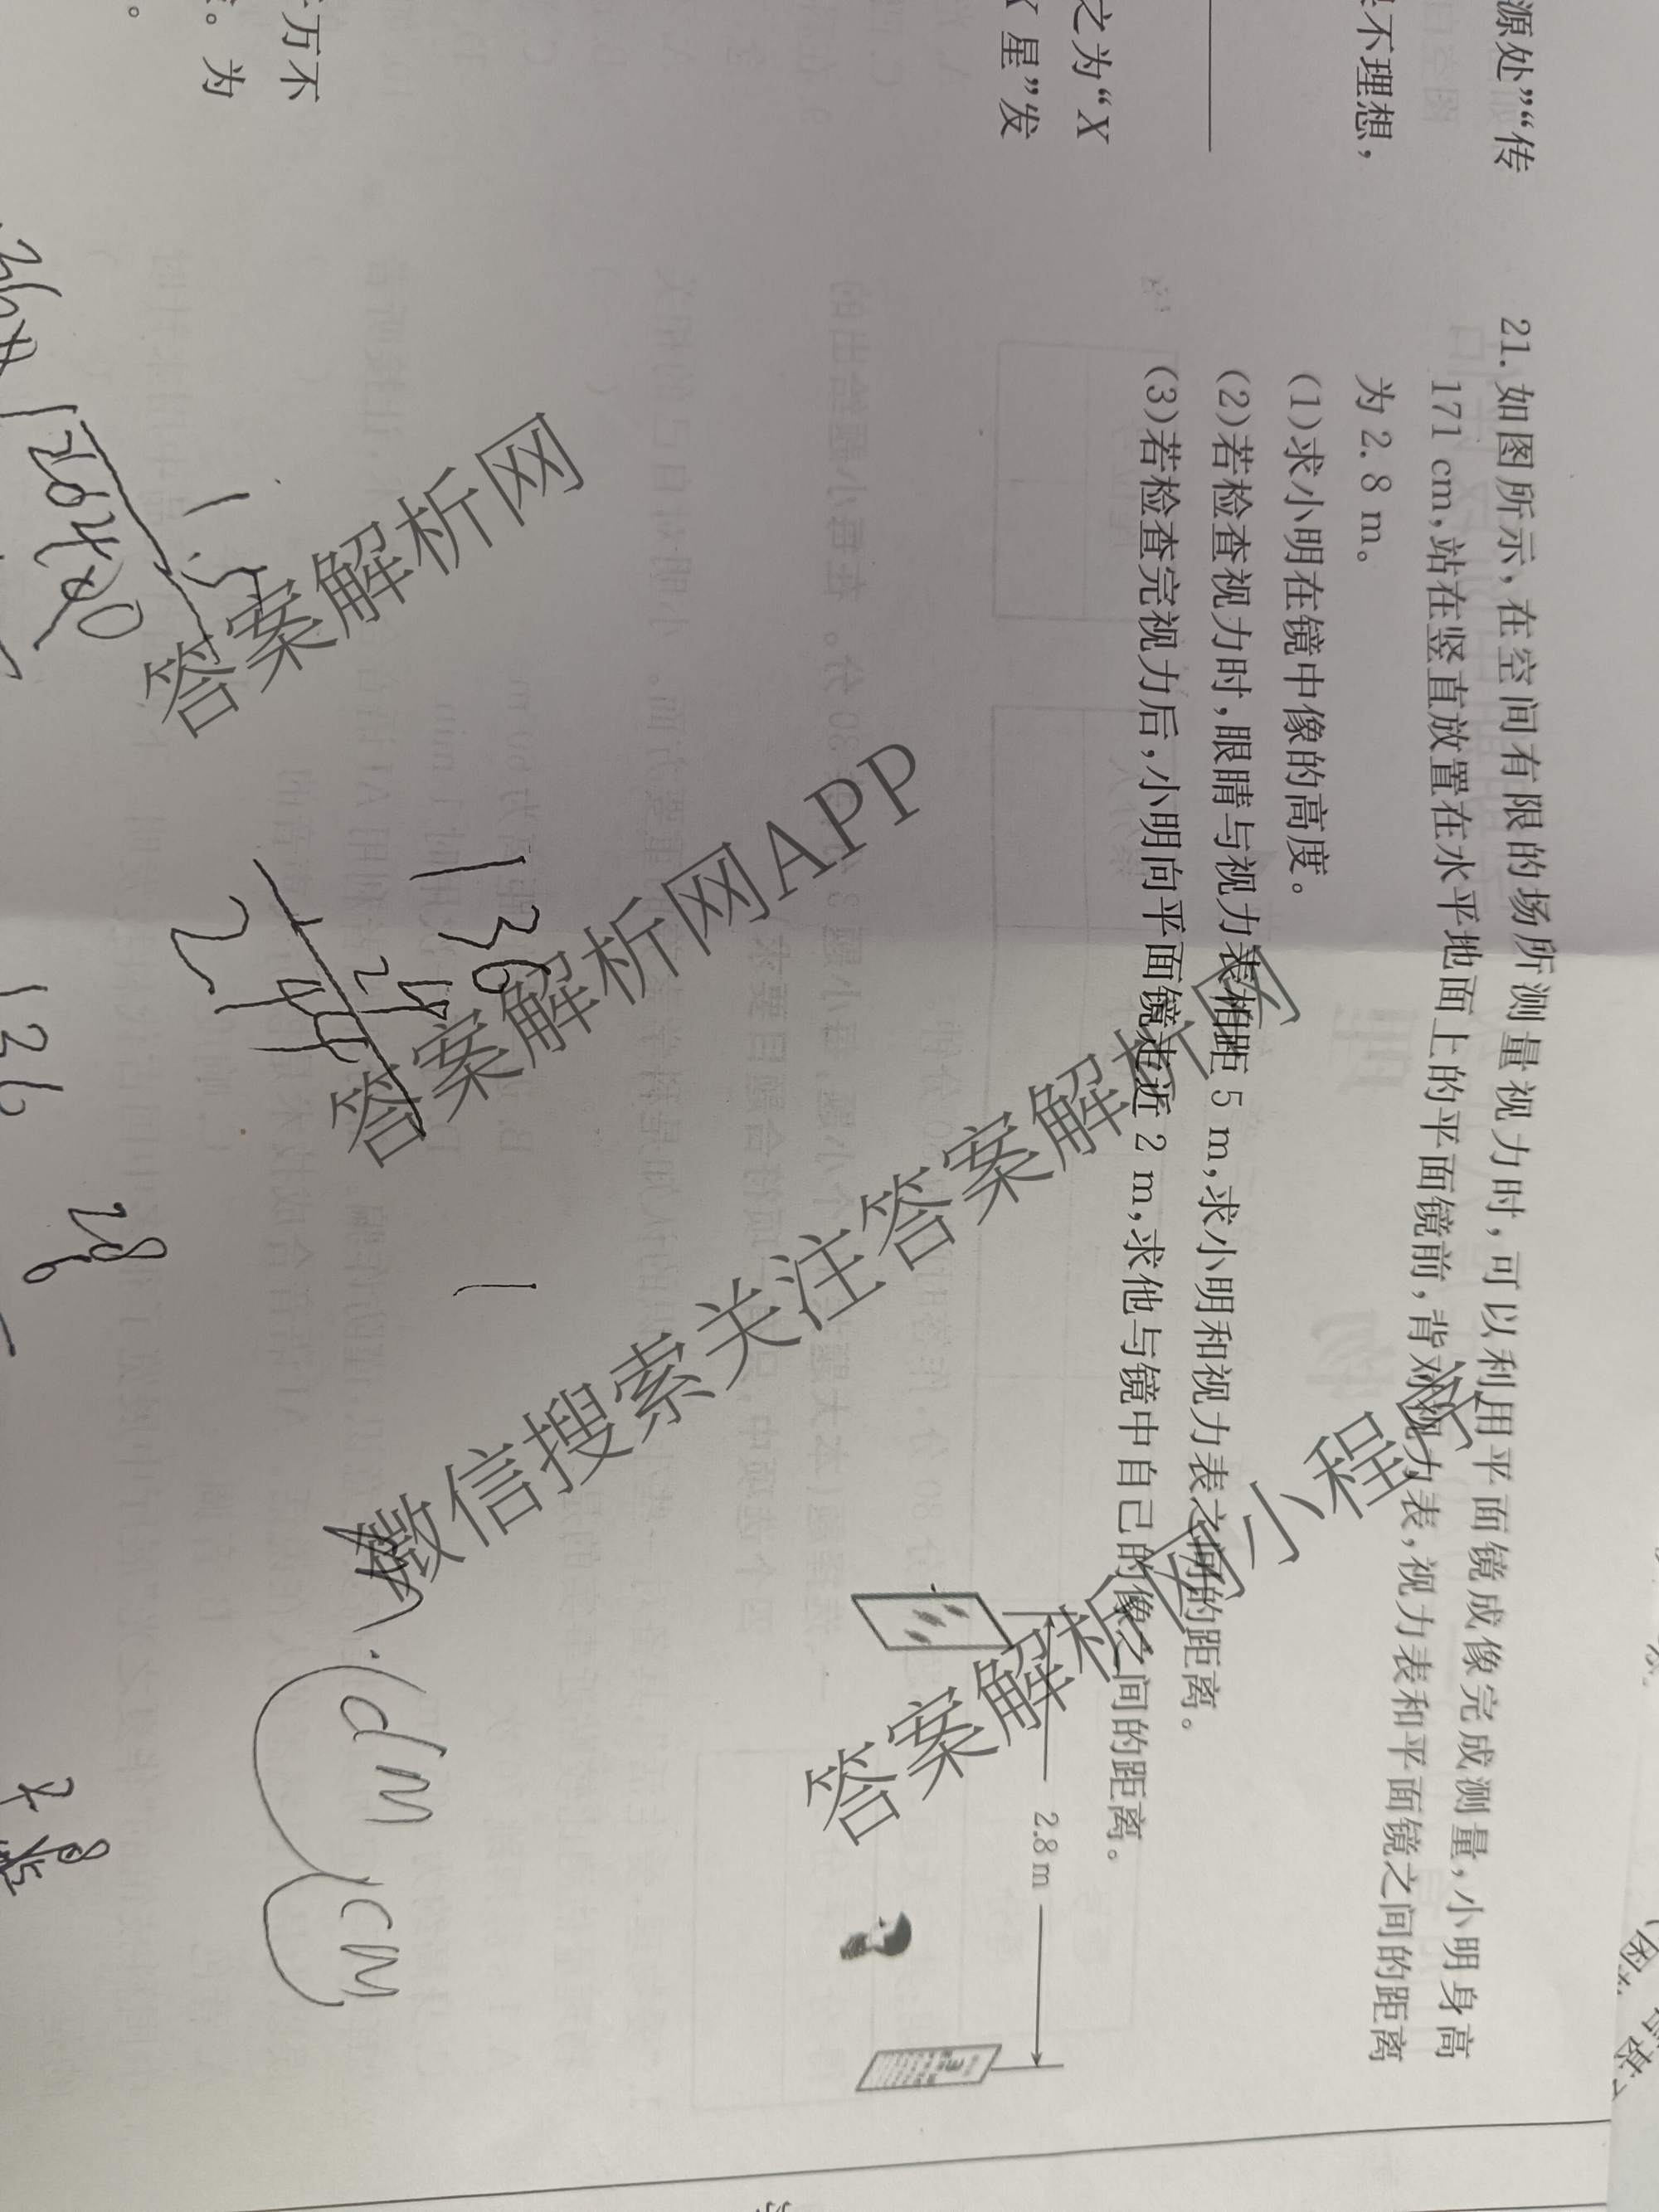 源处”“传
不理想，
之为“X
X 星”发
万不
。为
21. 如图所示，在空间有限的场所测量视力时，可以利用平面镜成像完成测量，小明身高
171 cm，站在竖直放置在水平地面上的平面镜前，背对视力表，视力表和平面镜之间的距离
为 2.8 m。
(1)求小明在镜中像的高度。
(2)若检查视力时，眼睛与视力表相距 5 m，求小明和视力表之间的距离。
(3)若检查完视力后，小明向平面镜走近 2 m，求他与镜中自己的像之间的距离。
2.8 m
1.5
136
24
244
1
136
28
dm
cm
答案解析网
答案解析网APP
微信搜索关注答案解析网
答案解析网小程序